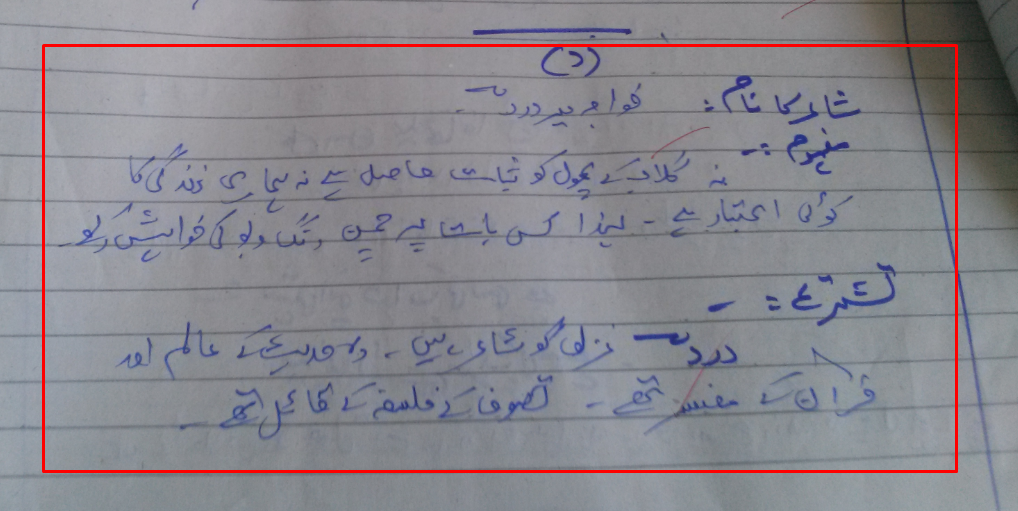 (د)
شاعر کا نام: خواجہ میر درد
مفہوم :-
نہ گلاب کے پھول کو ثبات حاصل ہے نہ ہماری زندگی کا
کوئی اعتبار ہے - لہٰذا کس بات پر چمن رنگ و بو کی خواہش کرے -
تشریح :-
درد غزل گو شاعر ہیں - وہ حدیث کے عالم اور
قرآن کے مفسر تھے - تصوف کے فلسفہ کے قائل تھے -